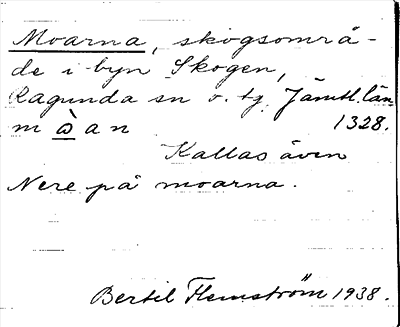 Moarna, skogsområ-
de i byn Skogen,
Ragunda sn o. tg. Jämtl. län
m å̀ a n 1328.
Kallas även
Nere på moarna.
Bertil Flemström 1938.